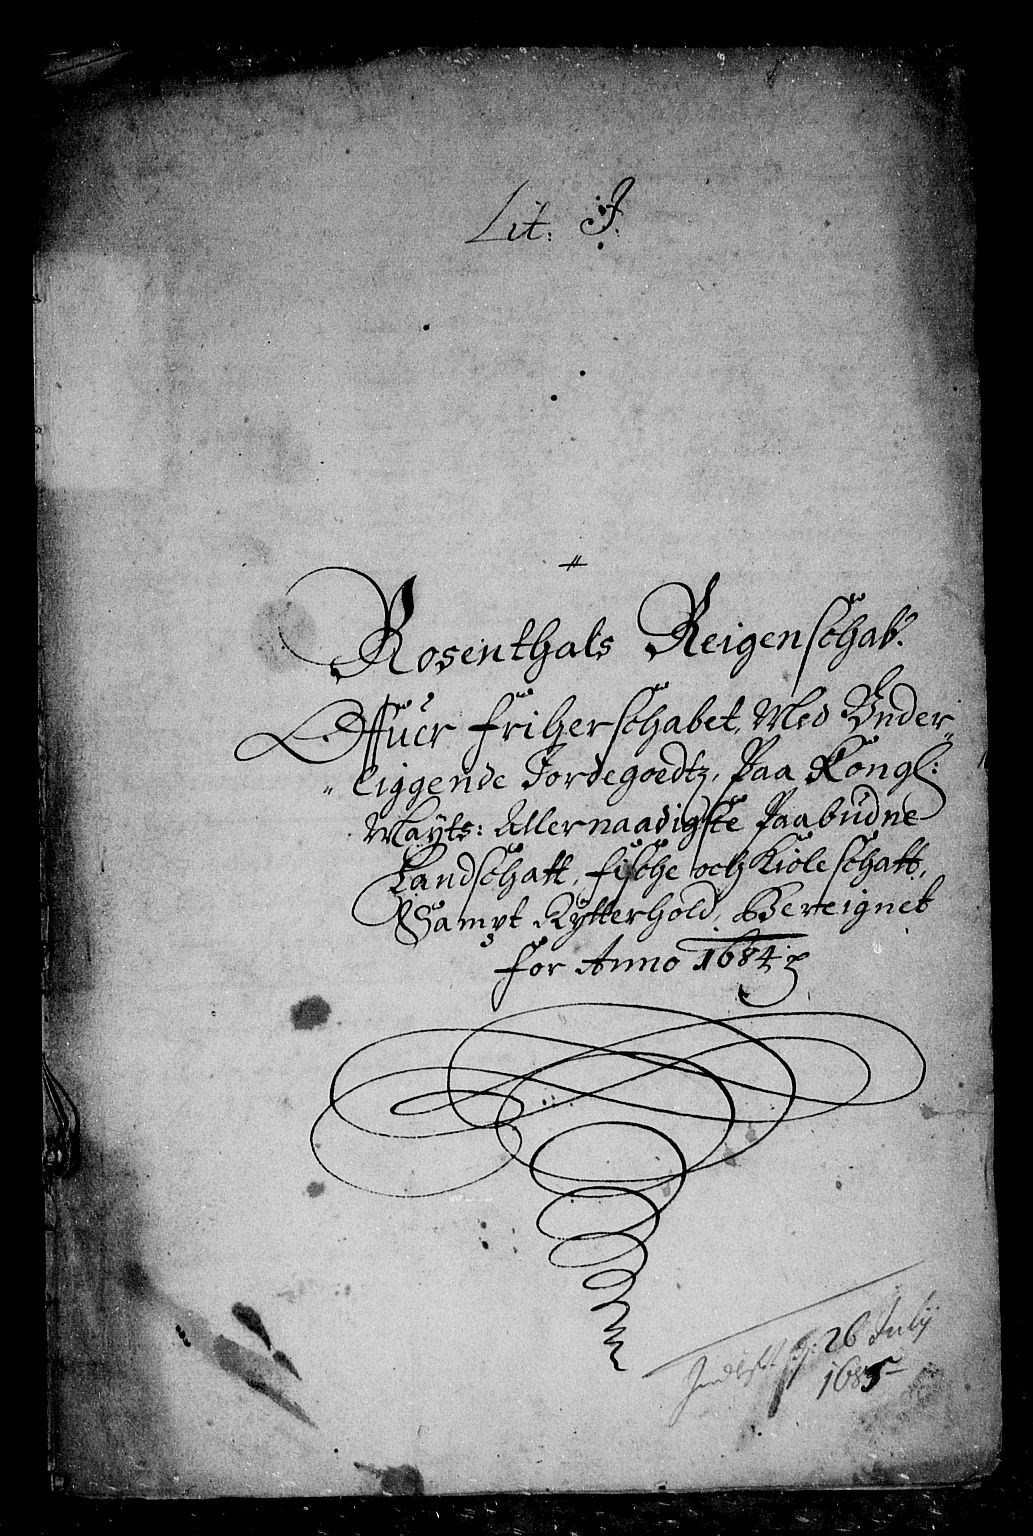 Lit: J.
Rosenthals Reigenschab.
Offuer friherschabet, Med Vnder„
„liggende Jordegoedtz, Paa Kongl:
Mayts: Allernaadigste Paabudne
Landschatt, fische och Kiöleschatt,
Sampt Rytterhold, Bereignet
for Anno 1684
26 Julij
1685